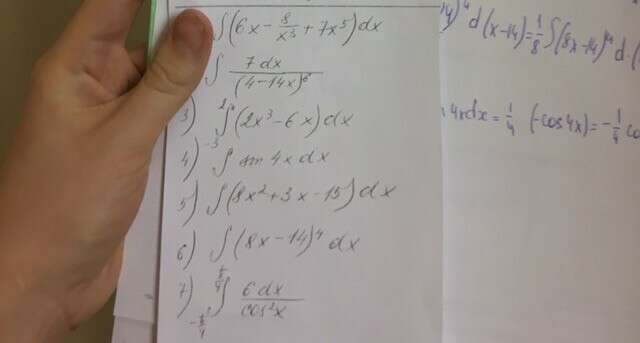 ∫(6x - 8/x⁵ + 7x⁵)dx
∫ 7dx/(4-14x)⁶
3) ∫(2x³-6x)dx
4) ∫ sin 4x dx
5) ∫(8x²+3x-15)dx
6) ∫(8x-14)⁴ dx
7) ∫ 6dx/cos²x
)⁴ d(x-14)=1/8 ∫(8x-14)⁴ d
4xdx = 1/4 (-cos4x) = -1/4 co